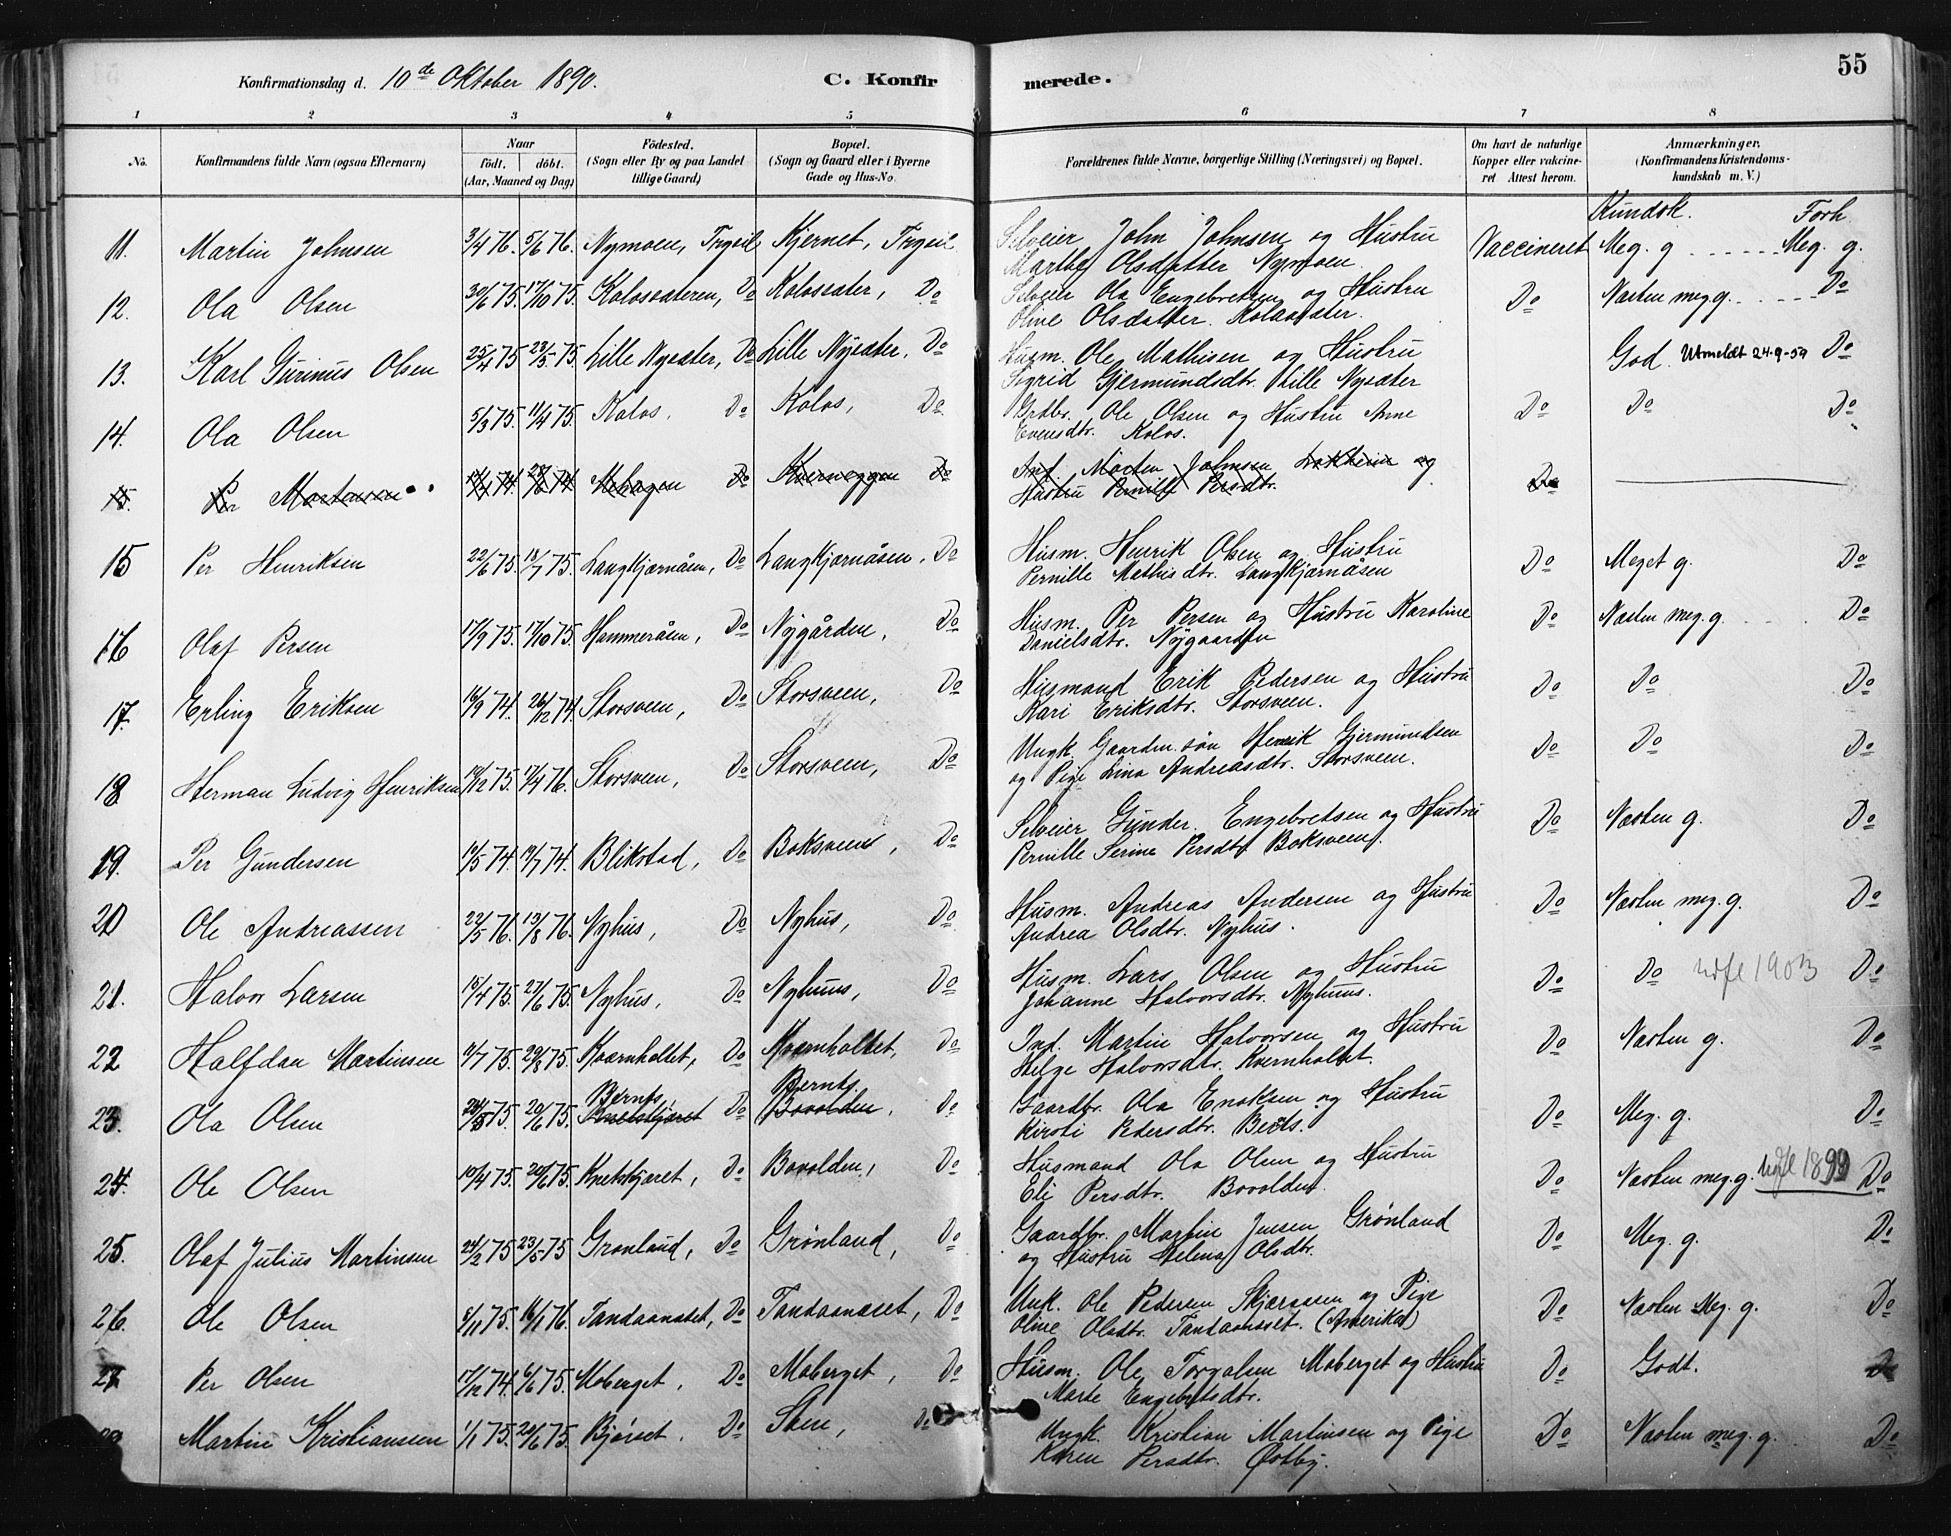 55
Konfirmationsdag d. 10de Oktober 1890. C. Konfirmerede.
1 2 3 4 5 6 7 8
No. Konfirmandens fulde Navn (ogsaa Efternavn) Naar födt. döbt. (Aar, Maaned og Dag) Födested. (Sogn eller By og paa Landet tillige Gaard) Bopæl. (Sogn og Gaard eller i Byerne Gade og Hus-No. Forældrenes fulde Navne, borgerlige Stilling (Næringsvei) og Bopæl. Om havt de naturlige Kopper eller vaccineret Attest herom. Anmærkninger. (Konfirmandens Kristendomskundskab m. V.)
Kundsk. Forh.
11. Martin Johnsen 3/4 76. 5/6 76. Nymoen, Trysil Kjernet, Trysil Selveier John Johnsen og Hustru Vaccineret Meg. g Meg. g.
Marthe Olsdatter Nymoen.
12. Ola Olsen 30/6 75. 17/10 75. Kolossæteren, Do Kolossæter, Do Selveier Ola Engebretsen og Hustru Do Næsten meg g. Do
Oline Olsdatter. Kolossæter.
13. Karl Gurinus Olsen 25/4 75 23/5 75. Lille Nysæter, Do Lille Nysæter, Do Husm. Ole Mathisen og Hustru God. Utmeldt 24-9-59 Do
Sigrid Gjermundsdtr. Lille Nysæter
14. Ola Olsen 5/3 75. 11/4 75. Kolos, Do Kolos, Do Grdbr. Ole Olsen og Hustru Anne Do Do Do
Evensdtr. Kolos.
15. Per Mortensen Do Kverneggen Do Ind. Morten Johnsen og Do
Hustru Pernille Persdtr.
15 Per Henriksen 22/6 75. 18/7 75. Langkjærnåsen, Do Langkjærnåsen, Do Husm. Henrik Olsen og Hustru Do Meget g. Do
Pernille Mathisdtr. Langkjærnåsen
16 Olaf Persen 17/9 75. 17/10 75. Hammeråsen, Do Nygården, Do Husm. Per Persen og Hustru Karoline Do Næsten meg. g. Do
Danielsdtr. Nygaarden
17. Erling Eriksen 16/9 74. 26/12 74. Storsveen, Do Storsveen, Do Husmand Erik Pedersen og Hustru Do Do Do
Kari Eriksdtr. Storsveen.
18 Herman Ludvig Henriksen 75. 17/4 76. Storsveen, Do Storsveen, Do Ungk. Gaardm. søn Henrik Gjermundsen Do Do Do
og Pige Lina Andreasdtr. Storsveen.
19. Per Gundersen 74. 74. Blikstad, Do Boksveen, Do Selveier Gunder Engebretsen og Hustru Do Næsten g. Do
Pernille Serine Persdtr. Boksveen.
20 Ole Andreassen 22/5 76. 13/8 76. Nyhus, Do Nyhus, Do Husm. Andreas Andersen og Hustru Do Næsten meg. g. Do
Andrea Olsdtr. Nyhus.
21. Halvor Larsen 18/4 75. 27/6 75. Nyhus, Do Nyhuus, Do Husm. Lars Olsen og Hustru Do Do udfl 1903 Do
Johanne Halvorsdtr. Nyhuus.
22 Halfdan Martinsen 75. 29/8 75. Kværnholtet, Do Kværnholtet, Do Ind. Martin Halvorsen og Hustru Do Næsten g. Do
Helge Halvorsdtr. Kvernholtet.
23. Ola Olsen 75. 20/6 75. Bernts, Knetskjæret Do Bernts. Bovolden, Do Gaardbr. Ola Enoksen og Hustru Do Meg. g. Do
Kirsti Pedersdtr.
24. Ole Olsen 19/4 75. 20/6 75. Knetskjæret, Do Bovolden, Do Husmand Ola Olsen og Hustru Do Næsten meg. g. udfl 1899 Do
Eli Persdtr. Bovolden.
25. Olaf Julius Martinsen 24/2 75 23/5 75 Grønland, Do Grønland, Do Gaardbr. Martin Jensen Grønland Do Meg. g. Do
og Hustru Helena Olsdtr.
26. Ole Olsen 8/11 75. 16/1 76. Tandaanæset, Do Tandaanæset, Do Unk. Ole Pedersen Skjæraasen og Pige Do Næsten Meg. g. Do
Oline Olsdtr. Tandaanæset. (Amerika)
27 Per Olsen 17/12 74. 6/6 75. Moberget, Do Moberget, Do Husm. Ole Torgalsen Moberget og Hustru Do Godt. Do
Marte Engebretsdtr.
Martin Kristiansen 1/1 75. 20/6 75. Bjørset, Do Do Ungk. Kristian Martinsen og Pige Do Næsten meg. g. Do
Karen Persdtr. Østby.